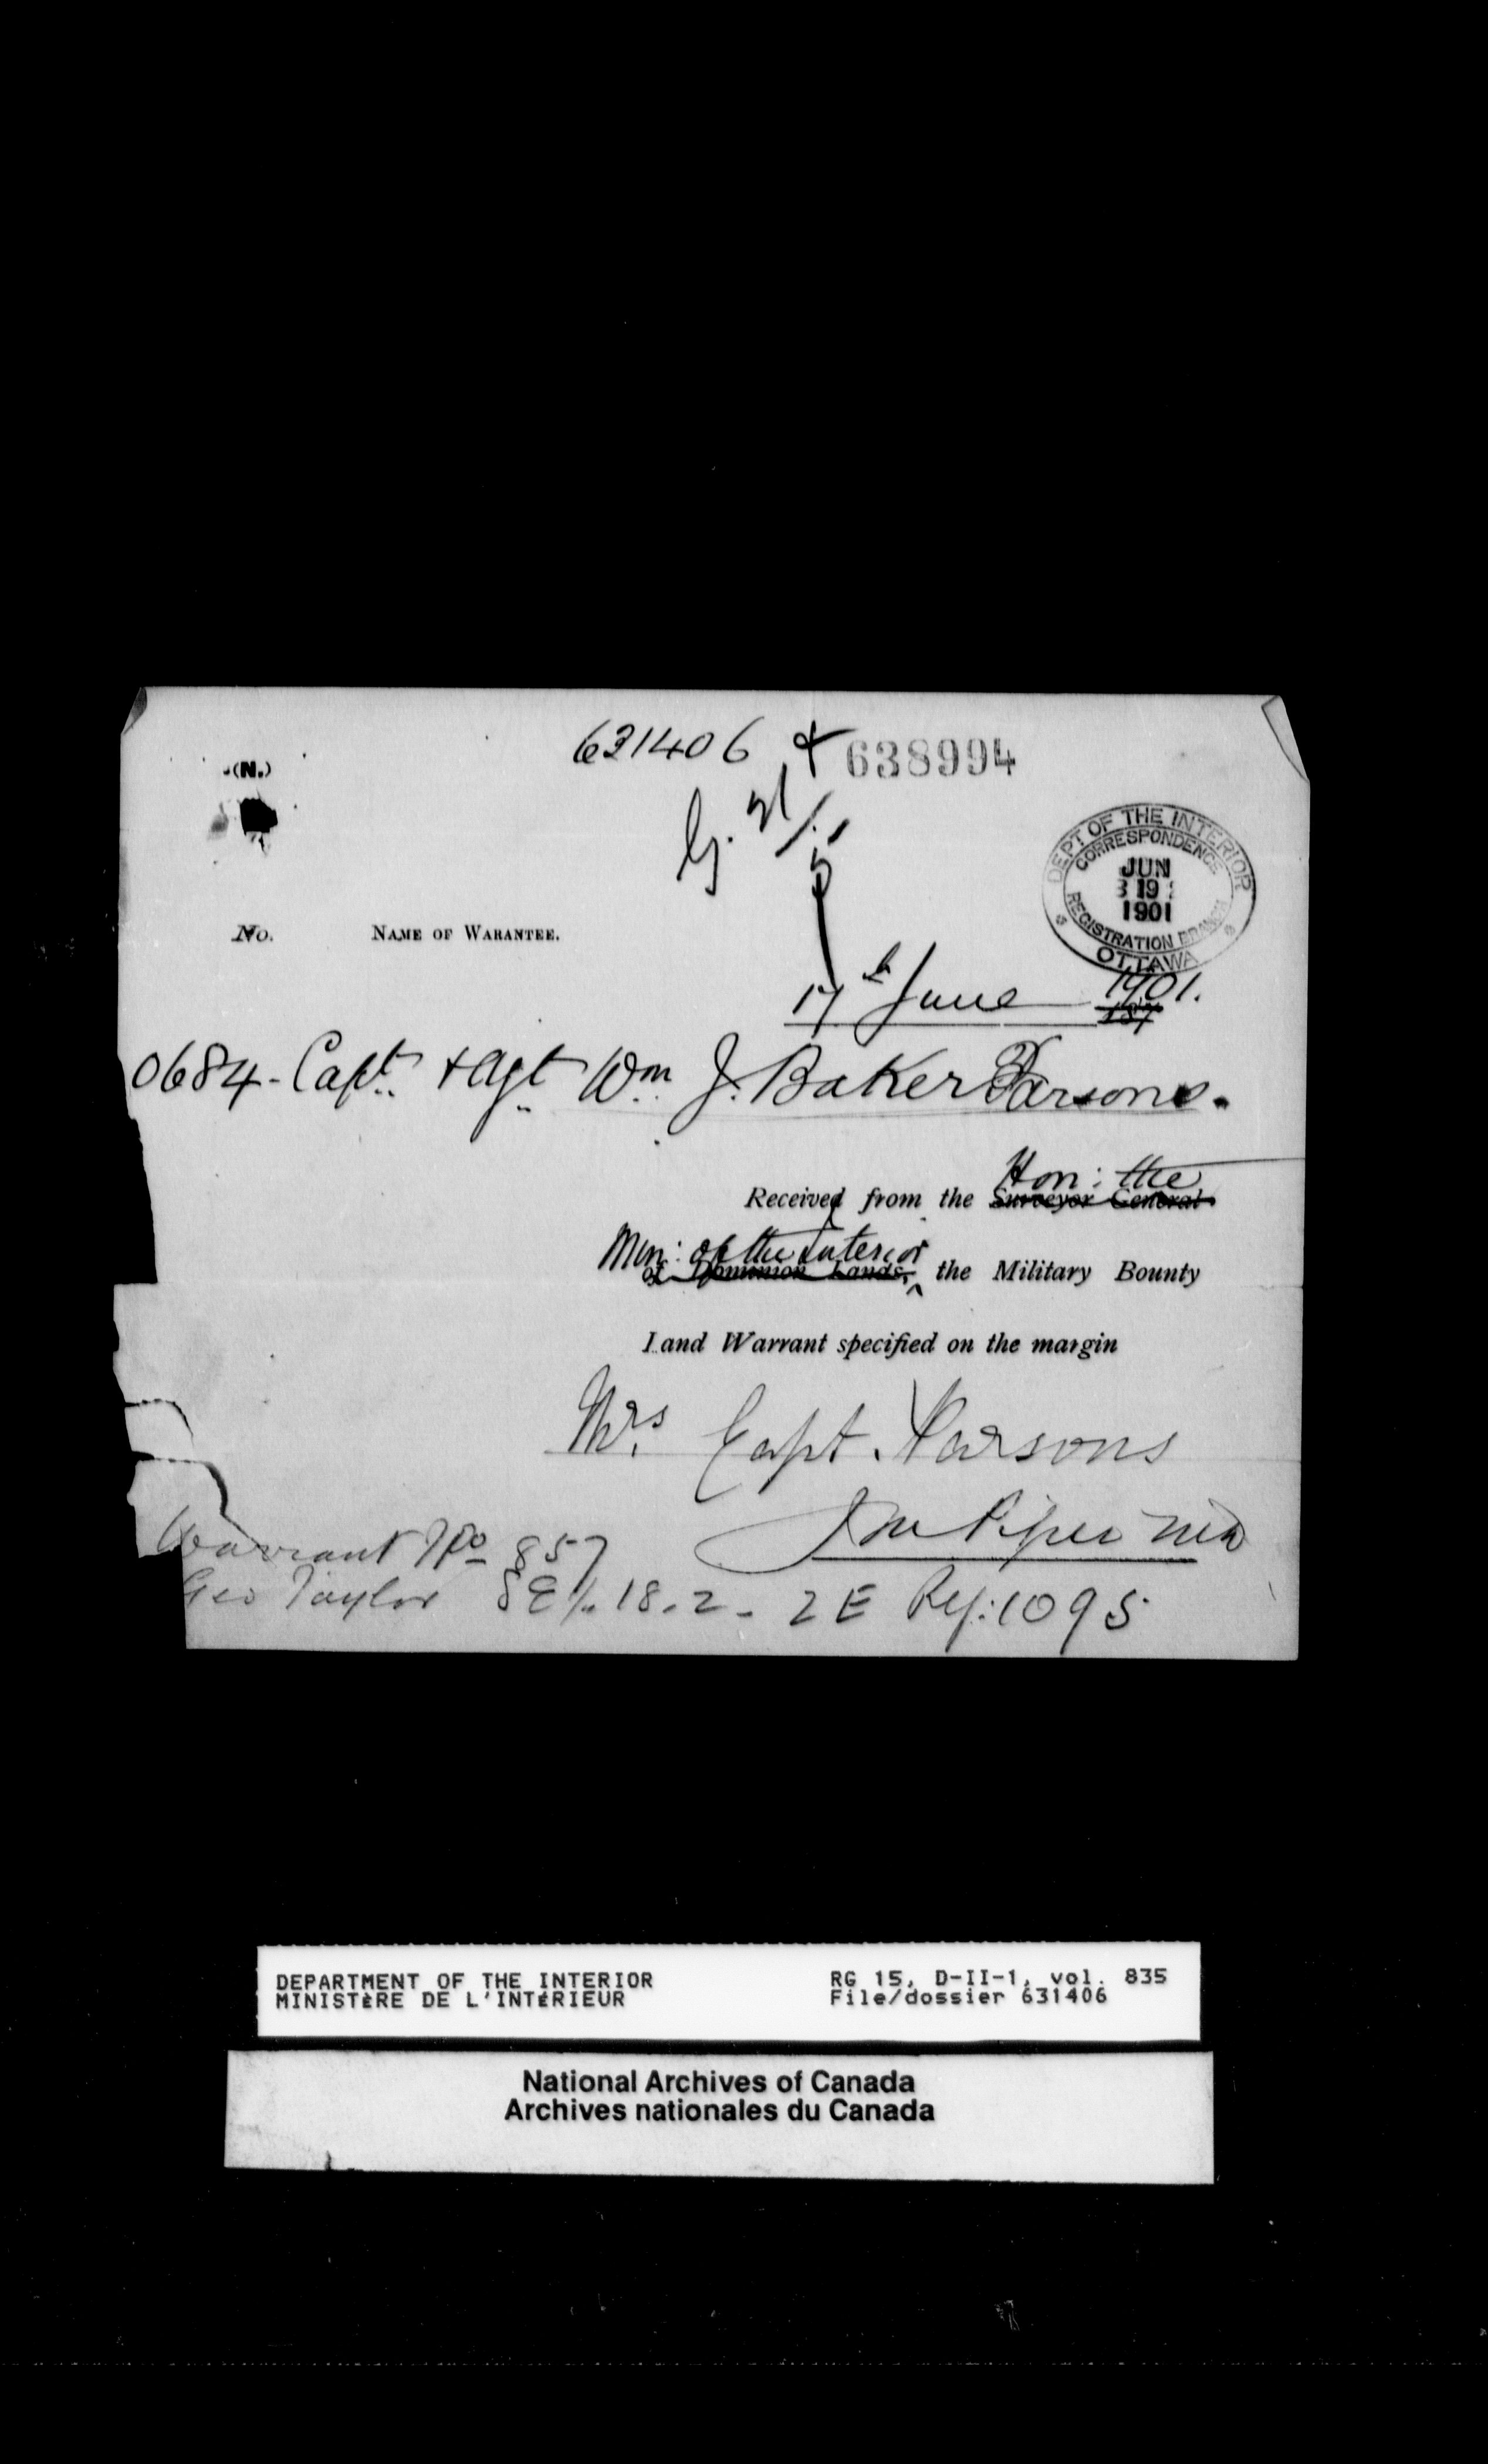 631406 & 638994
(N.)
DEPT OF THE INTERIOR
CORRESPONDENCE
JUN
19
1901
REGISTRATION BRANCH
OTTAWA
No. NAME OF WARANTEE.
17th June 1901.
187
0684 - Capt. + Agt. Wm. J. Baker Parsons.
Hon: the
Received from the Surveyor General
Min: of the Interior
of Dominion Lands, the Military Bounty
Land Warrant specified on the margin
Mrs. Capt. Parsons
Warrant No 857
Geo Taylor SE 1/4 18. 2 - 2 E Ref: 1095
DEPARTMENT OF THE INTERIOR RG 15, D-II-1, vol. 835
MINISTÈRE DE L'INTÉRIEUR File/dossier 631406
National Archives of Canada
Archives nationales du Canada